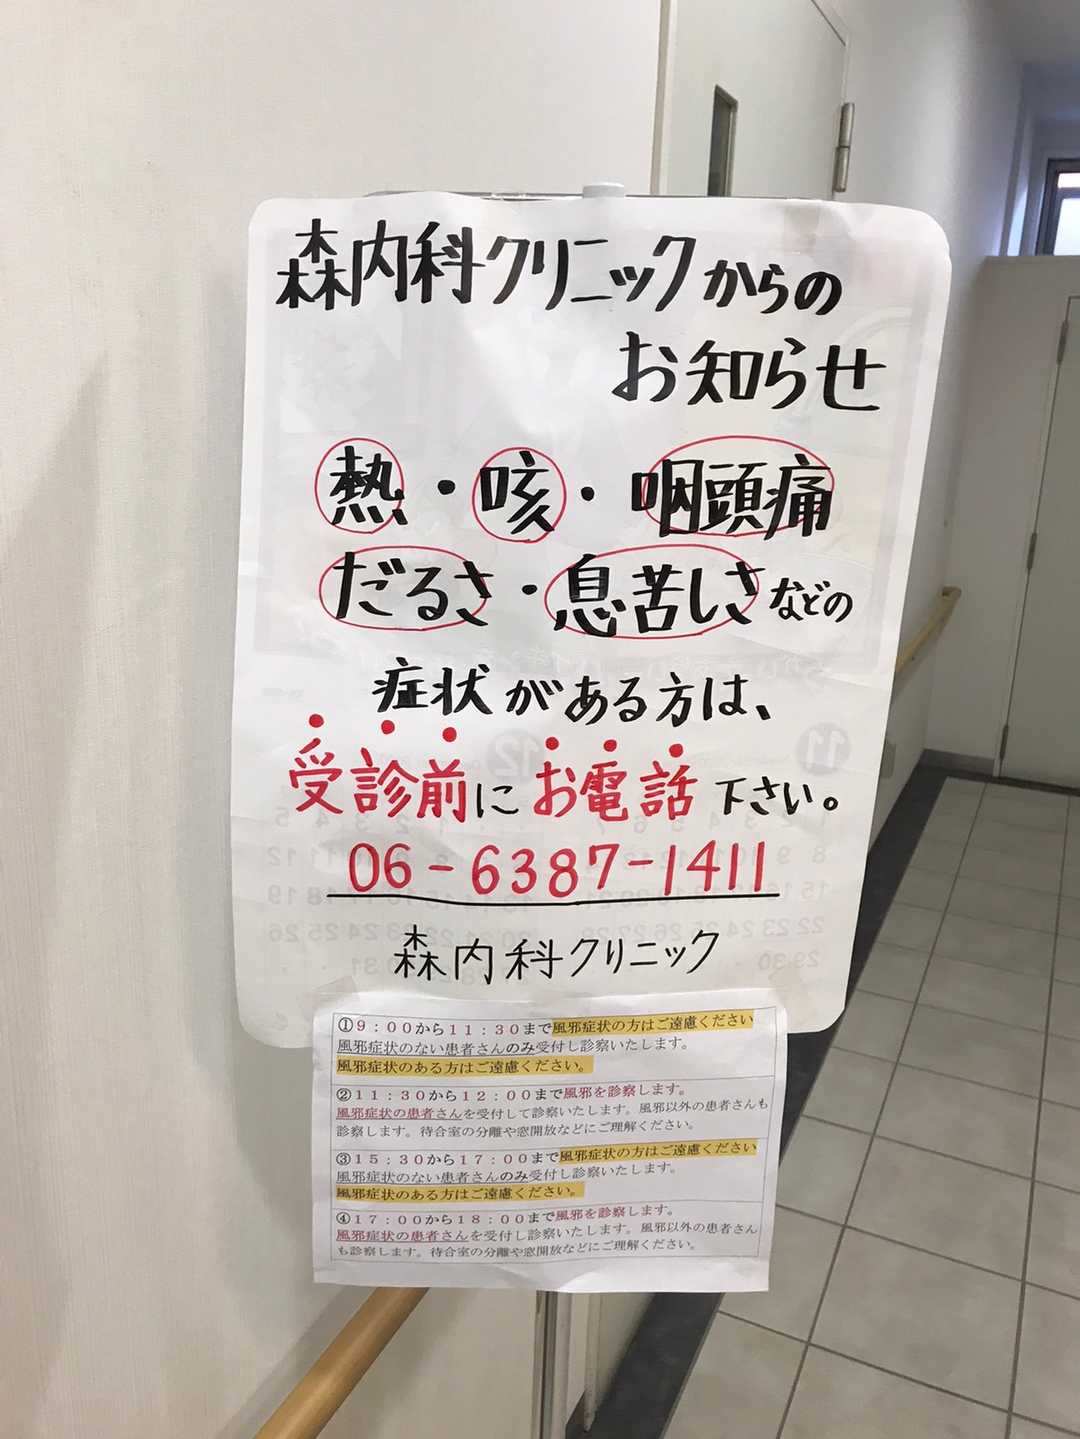 森内科クリニックからの
お知らせ
熱・咳・咽頭痛
だるさ・息苦しさなどの
症状がある方は、
受診前にお電話下さい。
06-6387-1411
森内科クリニック
①9：00から11：30まで風邪症状の方はご遠慮ください
風邪症状のない患者さんのみ受付し診察いたします。
風邪症状のある方はご遠慮ください。
②11：30から12：00まで風邪を診察します。
風邪症状の患者さんを受付して診察いたします。風邪以外の患者さんも
診察します。待合室の分離や窓開放などにご理解ください。
③15：30から17：00まで風邪症状の方はご遠慮ください
風邪症状のない患者さんのみ受付し診察いたします。
風邪症状のある方はご遠慮ください。
④17：00から18：00まで風邪を診察します。
風邪症状の患者さんを受付し診察いたします。風邪以外の患者さん
も診察します。待合室の分離や窓開放などにご理解ください。